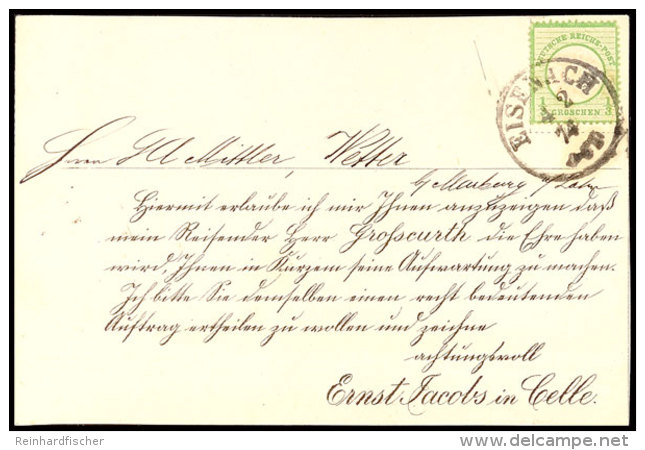 DEUTSCHE REICHS-POST
⅓ GROSCHEN ⅓
EISENACH
2
74
Herrn SA Mittler, Wetter
b/ Marburg a/ Lahn
Hiermit erlaube ich mir Ihnen anzuzeigen daß
mein Reisender Herr Grosscurth die Ehre haben
wird, Ihnen in Kurzem seine Aufwartung zu machen.
Ich bitte Sie demselben einen recht bedeutenden
Auftrag ertheilen zu wollen und zeichne
achtungsvoll
Ernst Jacobs in Celle.
Reinhardfischer
delcampe.net